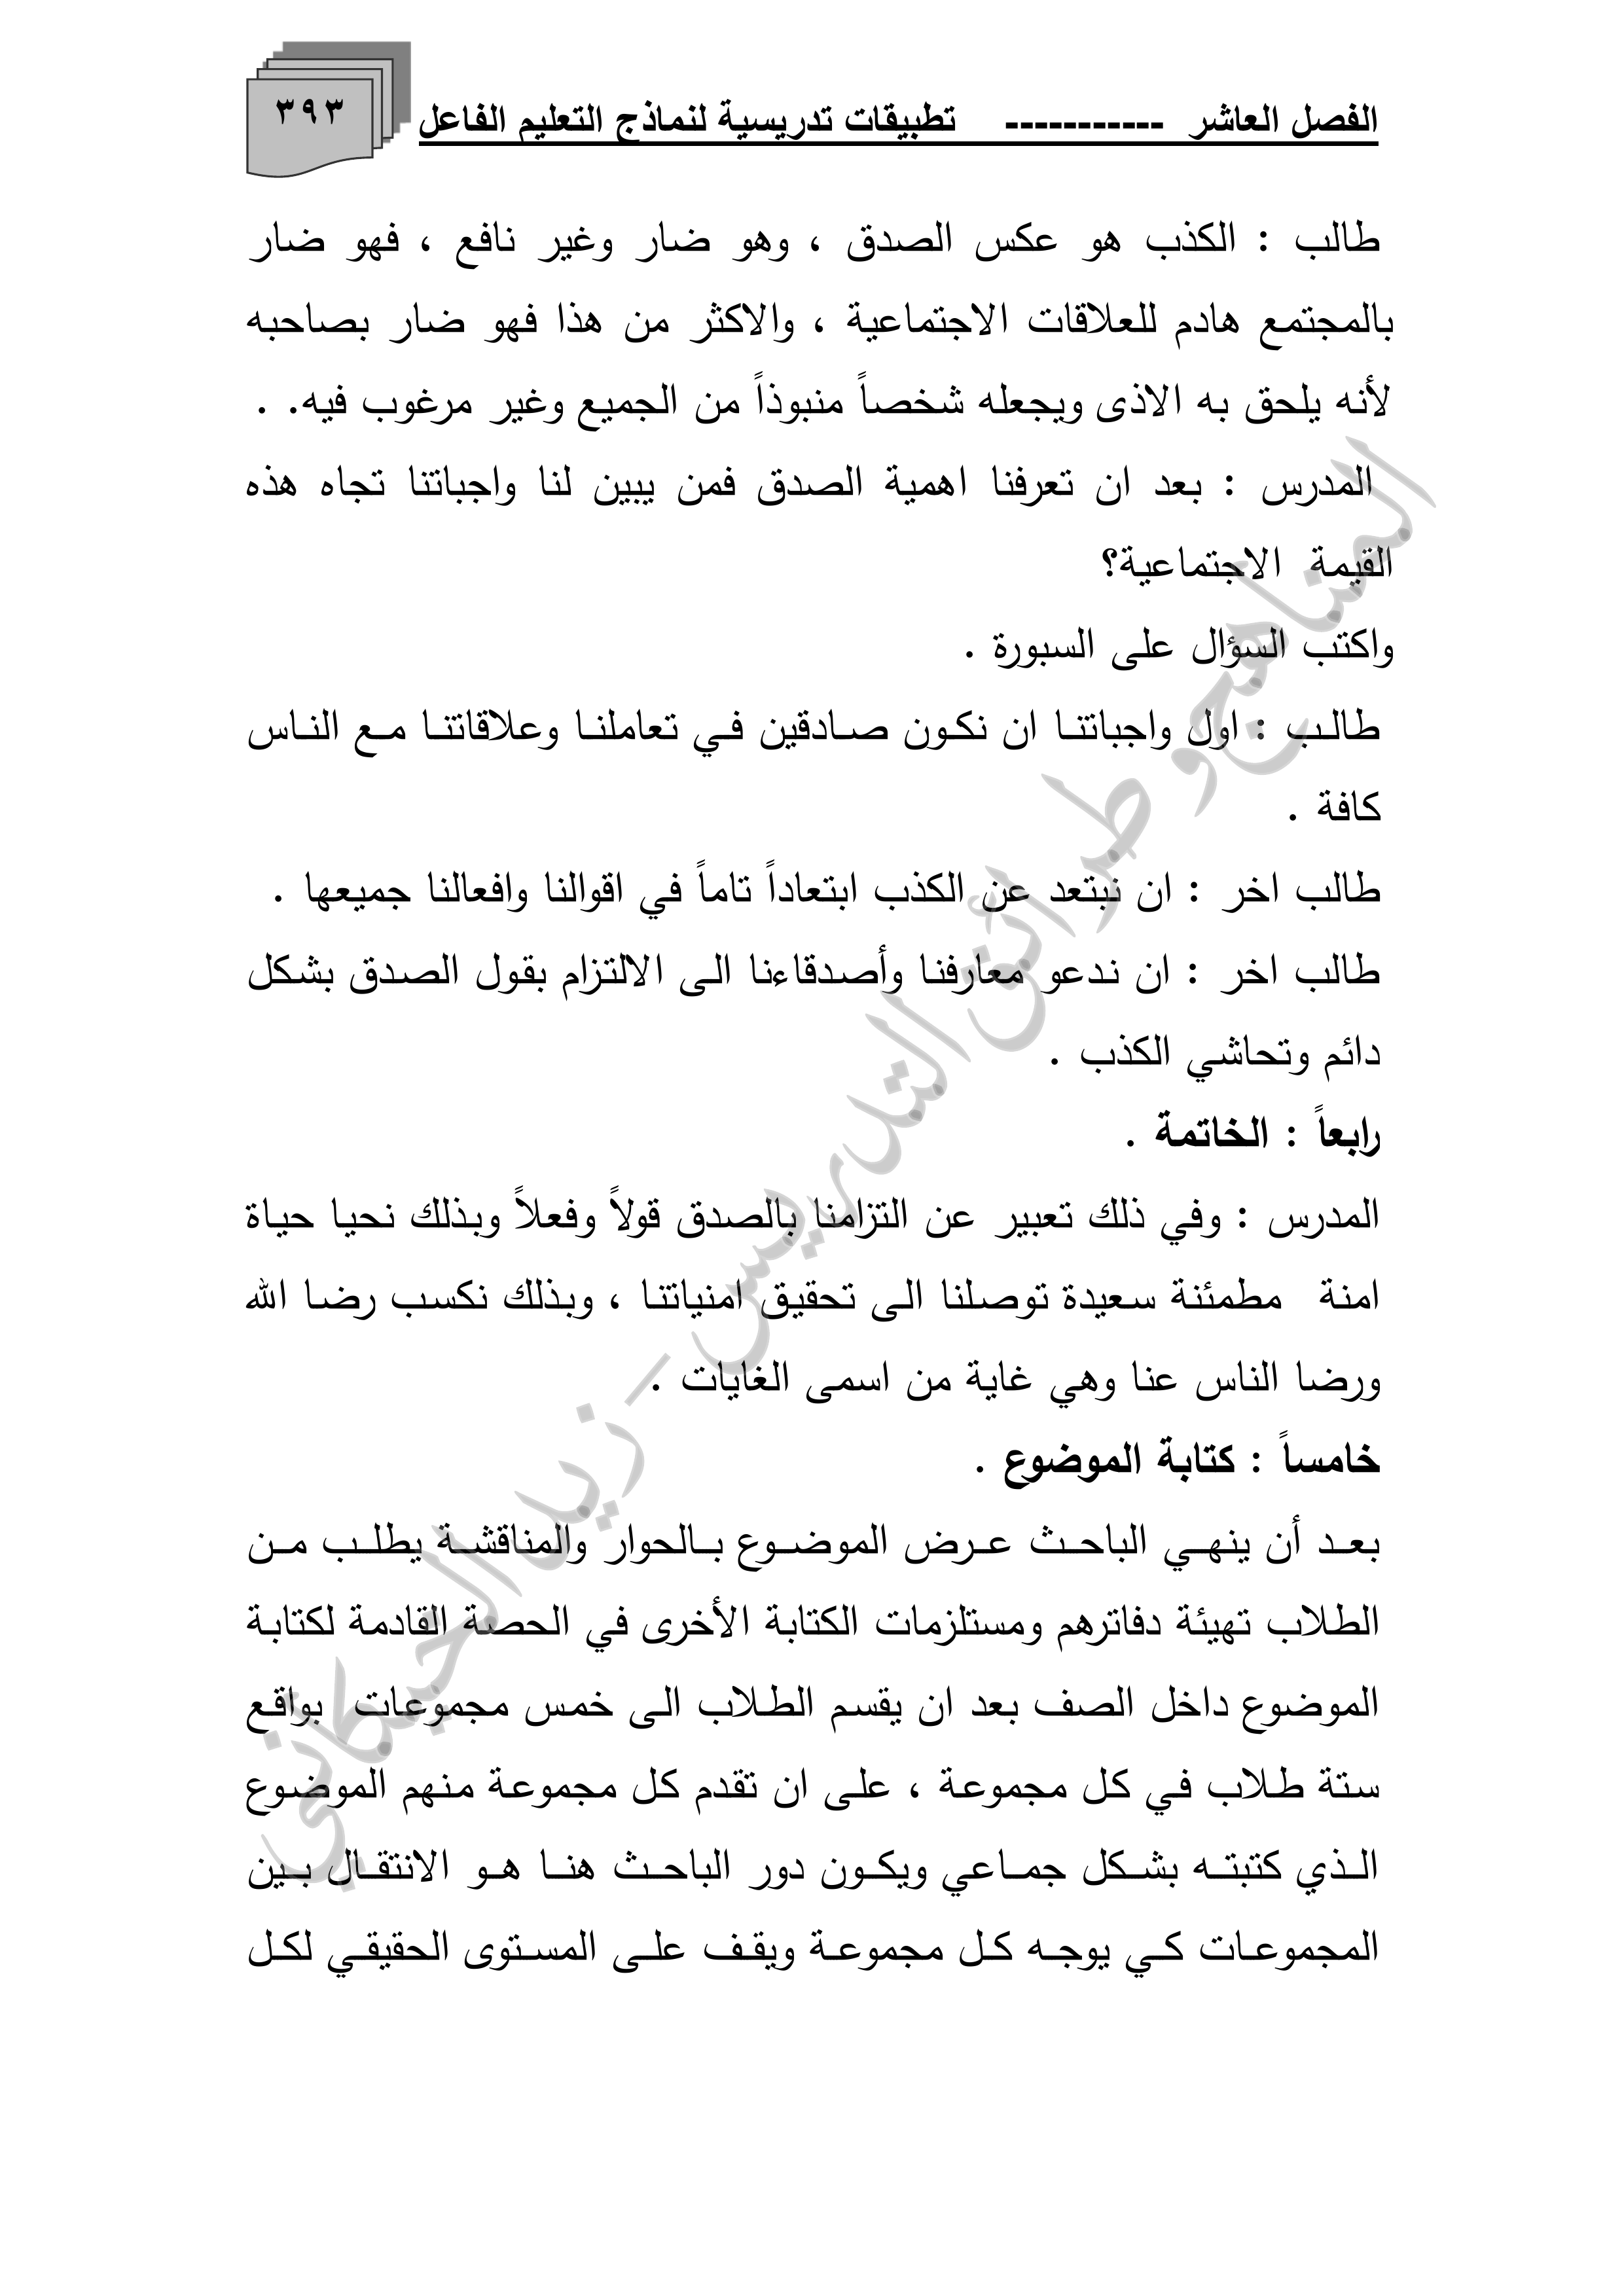 الفصل العاشر ----------- تطبيقات تدريسية لنماذج التعليم الفاعل
٣٩٣
طالب : الكذب هو عكس الصدق ، وهو ضار وغير نافع ، فهو ضار
بالمجتمع هادم للعلاقات الاجتماعية ، والاكثر من هذا فهو ضار بصاحبه
لأنه يلحق به الاذى ويجعله شخصاً منبوذاً من الجميع وغير مرغوب فيه. .
المدرس : بعد ان تعرفنا اهمية الصدق فمن يبين لنا واجباتنا تجاه هذه
القيمة الاجتماعية؟
واكتب السؤال على السبورة .
طالب : اول واجباتنا ان نكون صادقين في تعاملنا وعلاقاتنا مع الناس
كافة .
طالب اخر : ان نبتعد عن الكذب ابتعاداً تاماً في اقوالنا وافعالنا جميعها .
طالب اخر : ان ندعو معارفنا وأصدقاءنا الى الالتزام بقول الصدق بشكل
دائم وتحاشي الكذب .
رابعاً : الخاتمة .
المدرس : وفي ذلك تعبير عن التزامنا بالصدق قولاً وفعلاً وبذلك نحيا حياة
امنة مطمئنة سعيدة توصلنا الى تحقيق امنياتنا ، وبذلك نكسب رضا الله
ورضا الناس عنا وهي غاية من اسمى الغايات .
خامساً : كتابة الموضوع .
بعد أن ينهي الباحث عرض الموضوع بالحوار والمناقشة يطلب من
الطلاب تهيئة دفاترهم ومستلزمات الكتابة الأخرى في الحصة القادمة لكتابة
الموضوع داخل الصف بعد ان يقسم الطلاب الى خمس مجموعات بواقع
ستة طلاب في كل مجموعة ، على ان تقدم كل مجموعة منهم الموضوع
الذي كتبته بشكل جماعي ويكون دور الباحث هنا هو الانتقال بين
المجموعات كي يوجه كل مجموعة ويقف على المستوى الحقيقي لكل
المناهج وطرائق التدريس - زيد الخيكاني